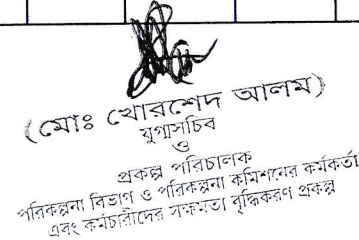 (মোঃ খোরশেদ আলম)
যুগ্মসচিব
ও
প্রকল্প পরিচালক
পরিকল্পনা বিভাগ ও পরিকল্পনা কমিশনের কর্মকর্তা
এবং কর্মচারীদের সক্ষমতা বৃদ্ধিকরণ প্রকল্প